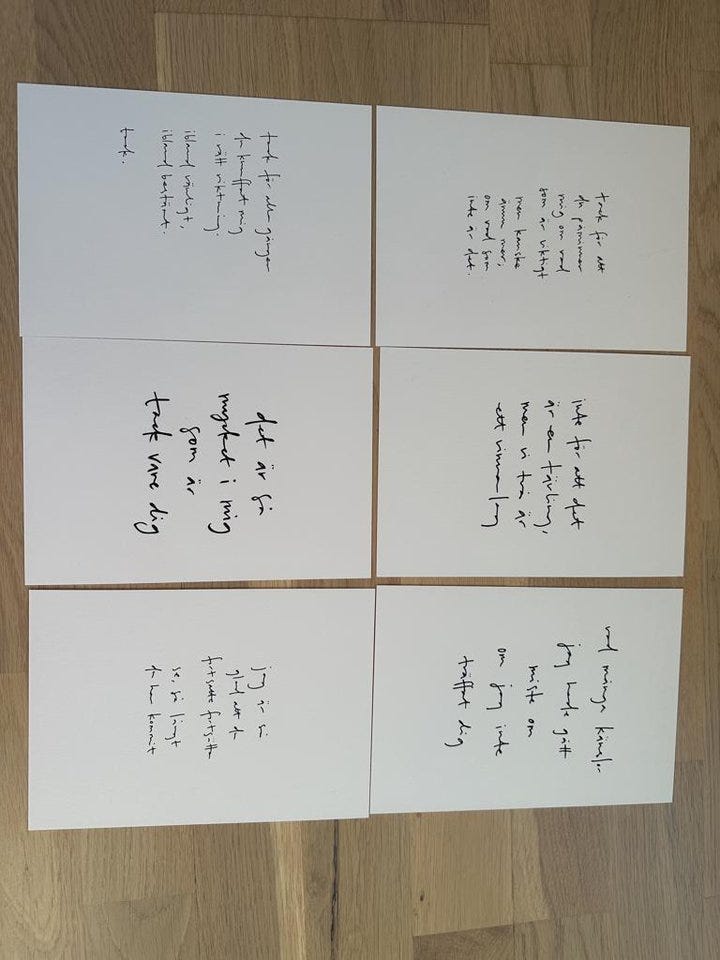 tack för att
du påminner
mig om vad
som är viktigt
men kanske
ännu mer,
om vad som
inte är det.
inte för att det
är en tävling,
men vi två är
ett vinnarlag
vad många känslor
jag hade gått
miste om
om jag inte
träffat dig
tack för alla gånger
du knuffat mig
i rätt riktning.
ibland vänligt,
ibland bestämt.
tack.
det är så
mycket i mig
som är
tack vare dig
jag är så
glad att du
fortsatte fortsätta
se, så långt
du har kommit